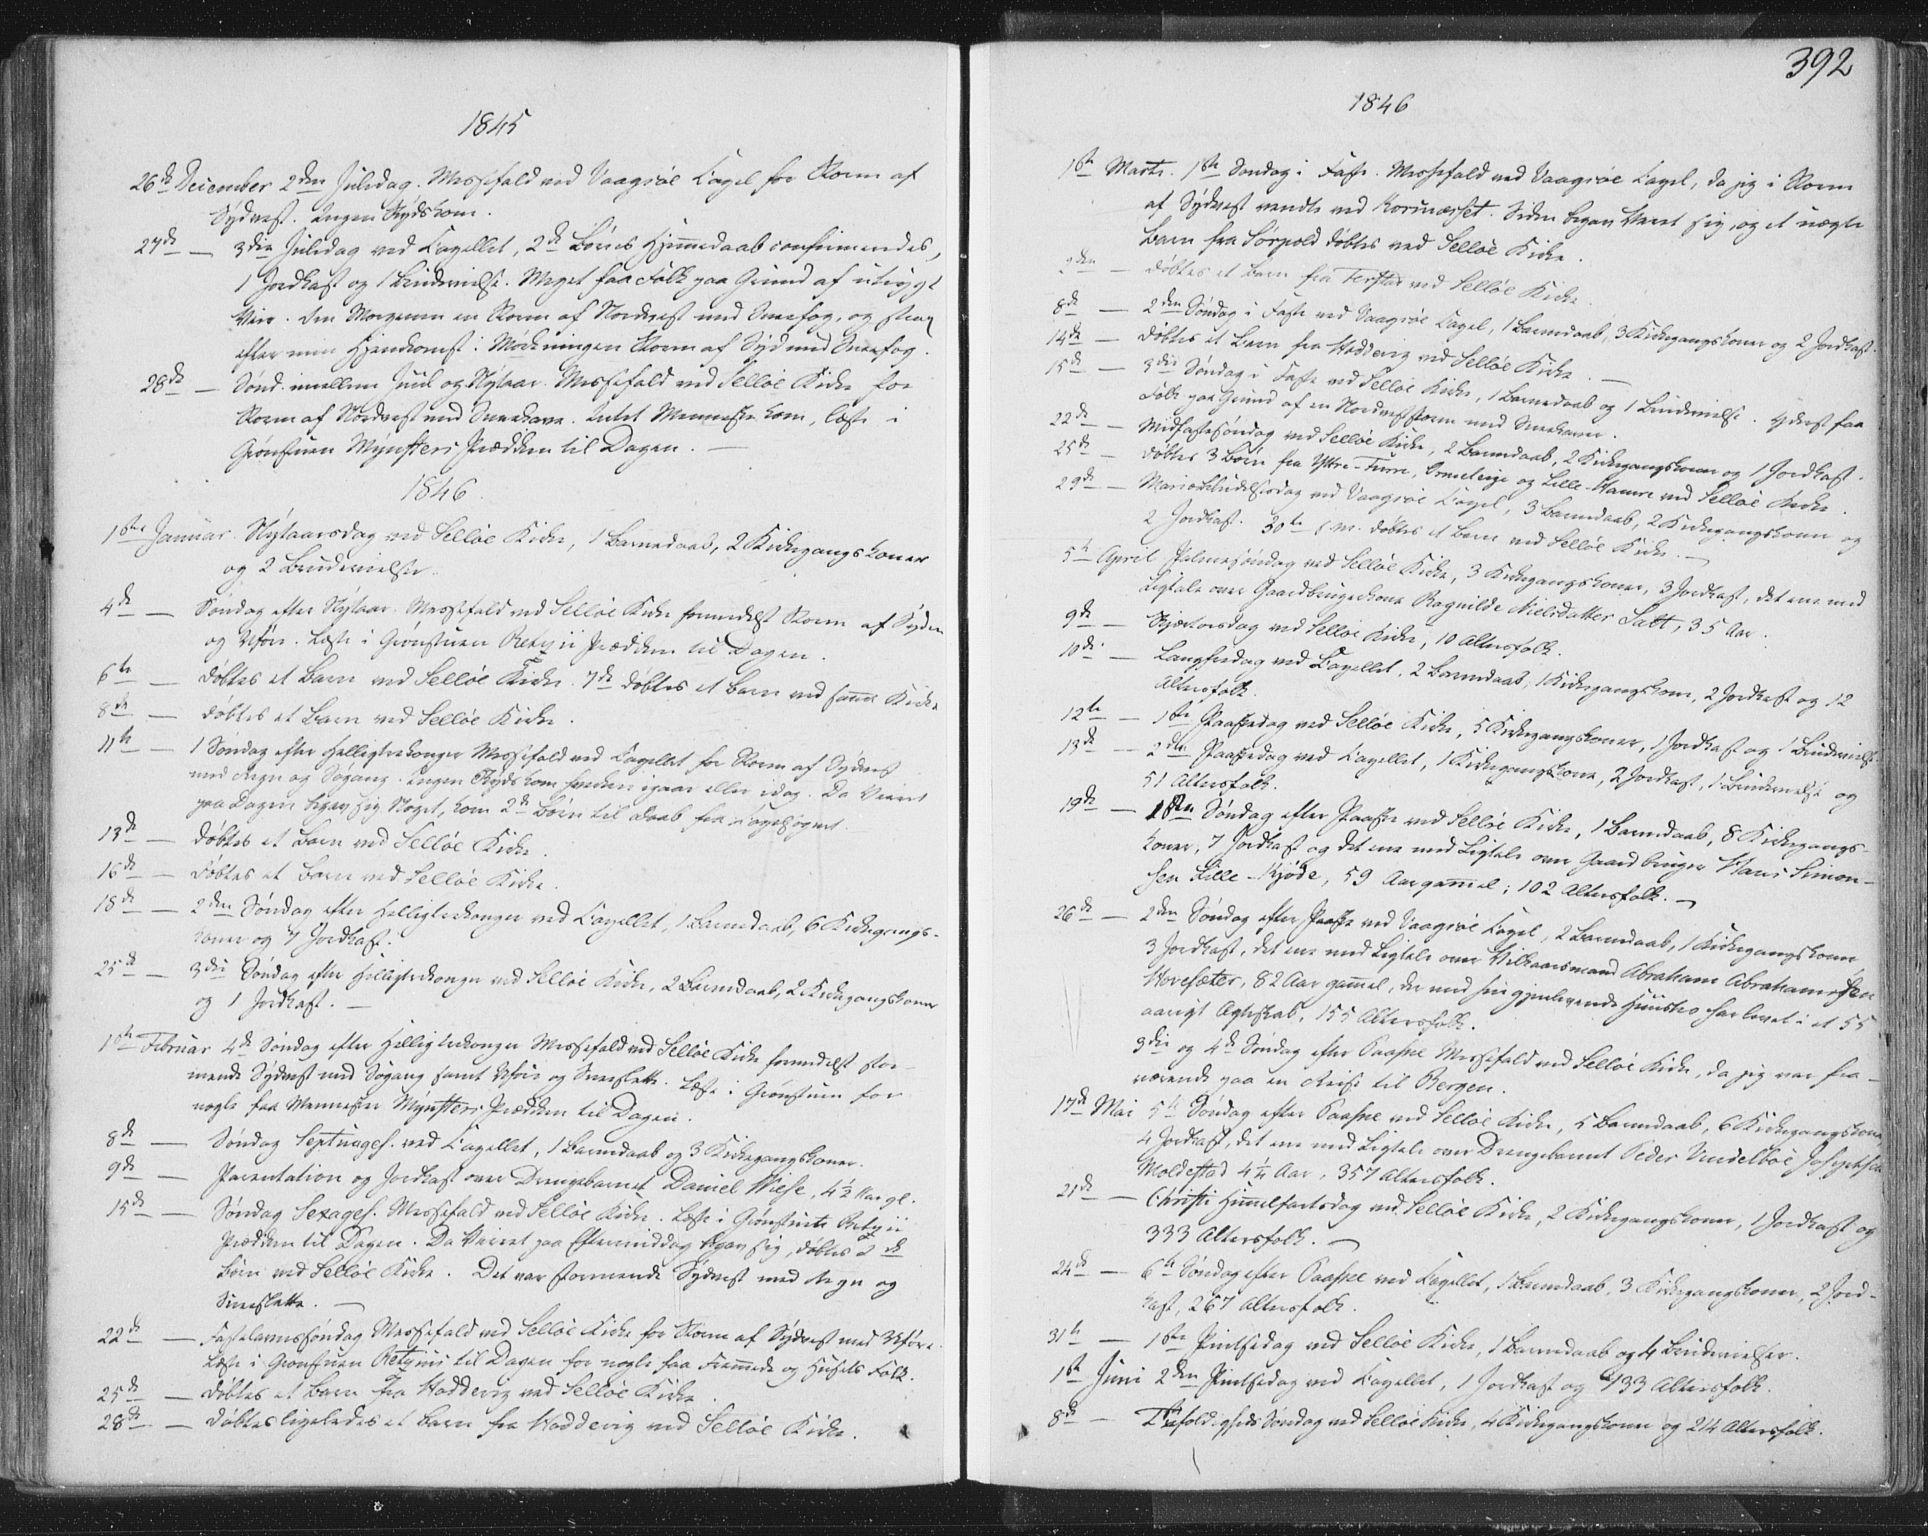 1845
26de December 2den Juledag. Messefald ved Vaagsøe Capel for Storm af
Sydvest. Ingen Skydskom.
27de — 3die Juledag ved Capellet, 2de Børns Hjemmedaab confirmeredes,
1 Jordkast og 1 Brudevielse. Meget faa Folk paa Grund af utrygt
Veir. Om Morgenen en Storm af Nordvest med Sneefog, og strax
efter min Hjemkomst i Mørkningen Storm af Syd med Sneefog.
28de — Sønd. imellem Juul og Nytaar. Messefald ved Selløe Kirke for
Storm af Nordvest med Sneekave. Intet Menneske kom, læste i
Grønstuen Mynsters Prædiken til Dagen. —
1846.
1ste Januar. Nytaarsdag ved Selløe Kirke, 1 Barnedaab, 2 Kirkegangskoner
og 2 Brudevielser.
4de — Søndag efter Nytaar. Messefald ved Selløe Kirke formedelst Storm af Syden
og Uføre. Læste i Grønstuen Retzii Prædiken til Dagen.
6te — døbtes et Barn ved Selløe Kirke. 7de døbtes et Barn ved samme Kirke
8de — døbtes et Barn ved Selløe Kirke.
11te — 1 Søndag efter Helligtrekonger Messefald ved Capellet for Storm af Sydvest
med Regn og Søgang. Ingen Skyds kom hverken igaar eller idag. Da Veiret
paa Dagen begav sig Noget, kom 2de Børn til Daab fra Capelsognet.
13de — døbtes et Barn ved Selløe Kirke.
16de — døbtes et Barn ved Selløe Kirke.
18de — 2den Søndag efter Helligtrekonger ved Capellet, 1 Barnedaab, 6 Kirkegangs-
koner og 7 Jordkast.
25de — 3die Søndag efter Helligtrekonger ved Selløe Kirke, 2 Barnedaab, 2 Kirkegangskoner
og 1 Jordkast. —
1ste Februar 4de Søndag efter Helligtrekonger Messefald ved Selløe Kirke formedelst stor-
mende Sydvest med Søgang samt Uføre og Sneeslette. Læste i Grønstuen for
nogle faa Mennesker Mynsters Prædiken til Dagen.
8de — Søndag Septuages. ved Capellet, 1 Barnedaab og 3 Kirkegangskoner.
9de — Parentation og Jordkast over Drengebarnet Daniel Wiese, 4½ Aar gl.
15de — Søndag Sexages. Messefald ved Selløe Kirke. Læste i Grønstuen Retzii
Prædiken til Dagen. Da Veiret paa Eftermiddag begav sig, døbtes 2de
Børn ved Selløe Kirke. Det var stormende Sydvest med Regn og
Sneeslette. —
22de — Fastelavnssøndag Messefald ved Selløe Kirke for Storm af Sydvest med Uføre.
Læste i Grønstuen Retzius til Dagen for nogle faa Fremmede og Husets Folk.
25de — døbtes et Barn fra Hoddevig ved Selløe Kirke.
28de — døbtes ligeledes et Barn fra Hoddevig ved Selløe Kirke.
392
1846
1ste Marts. 1ste Søndag i Faste. Messefald ved Vaagsøe Capel, da jeg i Storm
af Sydvest vendte ved Kornæsset. Siden begav Veiret sig, og et uægte
Barn fra Sørpold døbtes ved Selløe Kirke.
2den — døbtes et Barn fra Ferstad ved Selløe Kirke.
8de — 2den Søndag i Faste ved Vaagsøe Capel, 1 Barnedaab, 3 Kirkegangskoner og 2 Jordkast.
14de — døbtes et Barn fra Hoddevig ved Selløe Kirke. —
15de — 3die Søndag i Faste ved Selløe Kirke, 1 Barnedaab og 1 Brudevielse. Yderst faa
Folk paa Grund af en Nordveststorm med Sneekaver.
22de — Midfastesøndag ved Selløe Kirke, 2 Barnedaab, 2 Kirkegangskoner og 1 Jordkast.
25de — døbtes 3 Børn fra Yttre-Furre, Drageseide og Lille-Hamre ved Selløe Kirke.
29de — Mariæbebudelsesdag ved Vaagsøe Capel, 3 Barnedaab, 2 Kirkegangskoner og
2 Jordkast. 30te s.m. døbtes et Barn ved Selløe Kirke. —
5te April Palmesøndag ved Selløe Kirke, 3 Kirkegangskoner, 3 Jordkast, det ene med
Ligtale over Gaardbrugerkone Ragnilde Nielsdatter Satt, 35 Aar.
9de — Skjærtorsdag ved Selløe Kirke, 10 Altersfolk.
10de — Langfredag ved Capellet, 2 Barnedaab, 1 Kirkegangskone, 2 Jordkast og 12
Altersfolk.
12te — 1ste Paaskedag ved Selløe Kirke, 5 Kirkegangskoner, 1 Jordkast og 1 Brudevielse.
13de — 2den Paaskedag ved Capellet, 1 Kirkegangskone, 2 Jordkast, 1 Brudevielse og
51 Altersfolk.
19de — 1ste Søndag efter Paaske ved Selløe Kirke, 1 Barnedaab, 8 Kirkegangs-
koner, 7 Jordkast og det ene med Ligtale over Gaardbruger Hans Simon-
sen Lille-Kjøde, 59 Aar gammel; 102 Altersfolk. —
26de — 2den Søndag efter Paaske ved Vaagsøe Capel, 2 Barnedaab, 1 Kirkegangskone
3 Jordkast, det ene med Ligtale over Vilkaarsmand Abraham Abrahamsen
Hovesæter, 82 Aar gammel, der med sin gjenlevende Hustro har levet i et 55
aarigt Ægteskab. 155 Altersfolk.
3die og 4de Søndag efter Paaske Messefald ved Selløe Kirke, da jeg var fra-
værende paa en Reise til Bergen.
17de Mai 5te Søndag efter Paaske ved Selløe Kirke, 5 Barnedaab, 6 Kirkegangskoner
4 Jordkast, det ene med Ligtale over Drengebarnet Peder Vendelboe Josephsen
Moldestad 4¼ Aar, 357 Altersfolk.
21de — Christi Himmelfartsdag ved Selløe Kirke, 2 Kirkegangskoner, 1 Jordkast og
333 Altersfolk. —
24de — 6te Søndag efter Paaske ved Capellet, 1 Barnedaab, 3 Kirkegangskoner, 2 Jord-
kast, 267 Altersfolk.
31te — 1ste Pintsedag ved Selløe Kirke, 1 Barnedaab og 4 Brudevielser.
1ste Juni 2den Pintsedag ved Capellet, 1 Jordkast og 133 Altersfolk.
8de — Trefoldigheds Søndag ved Selløe Kirke, 4 Kirkegangskoner og 214 Altersfolk.